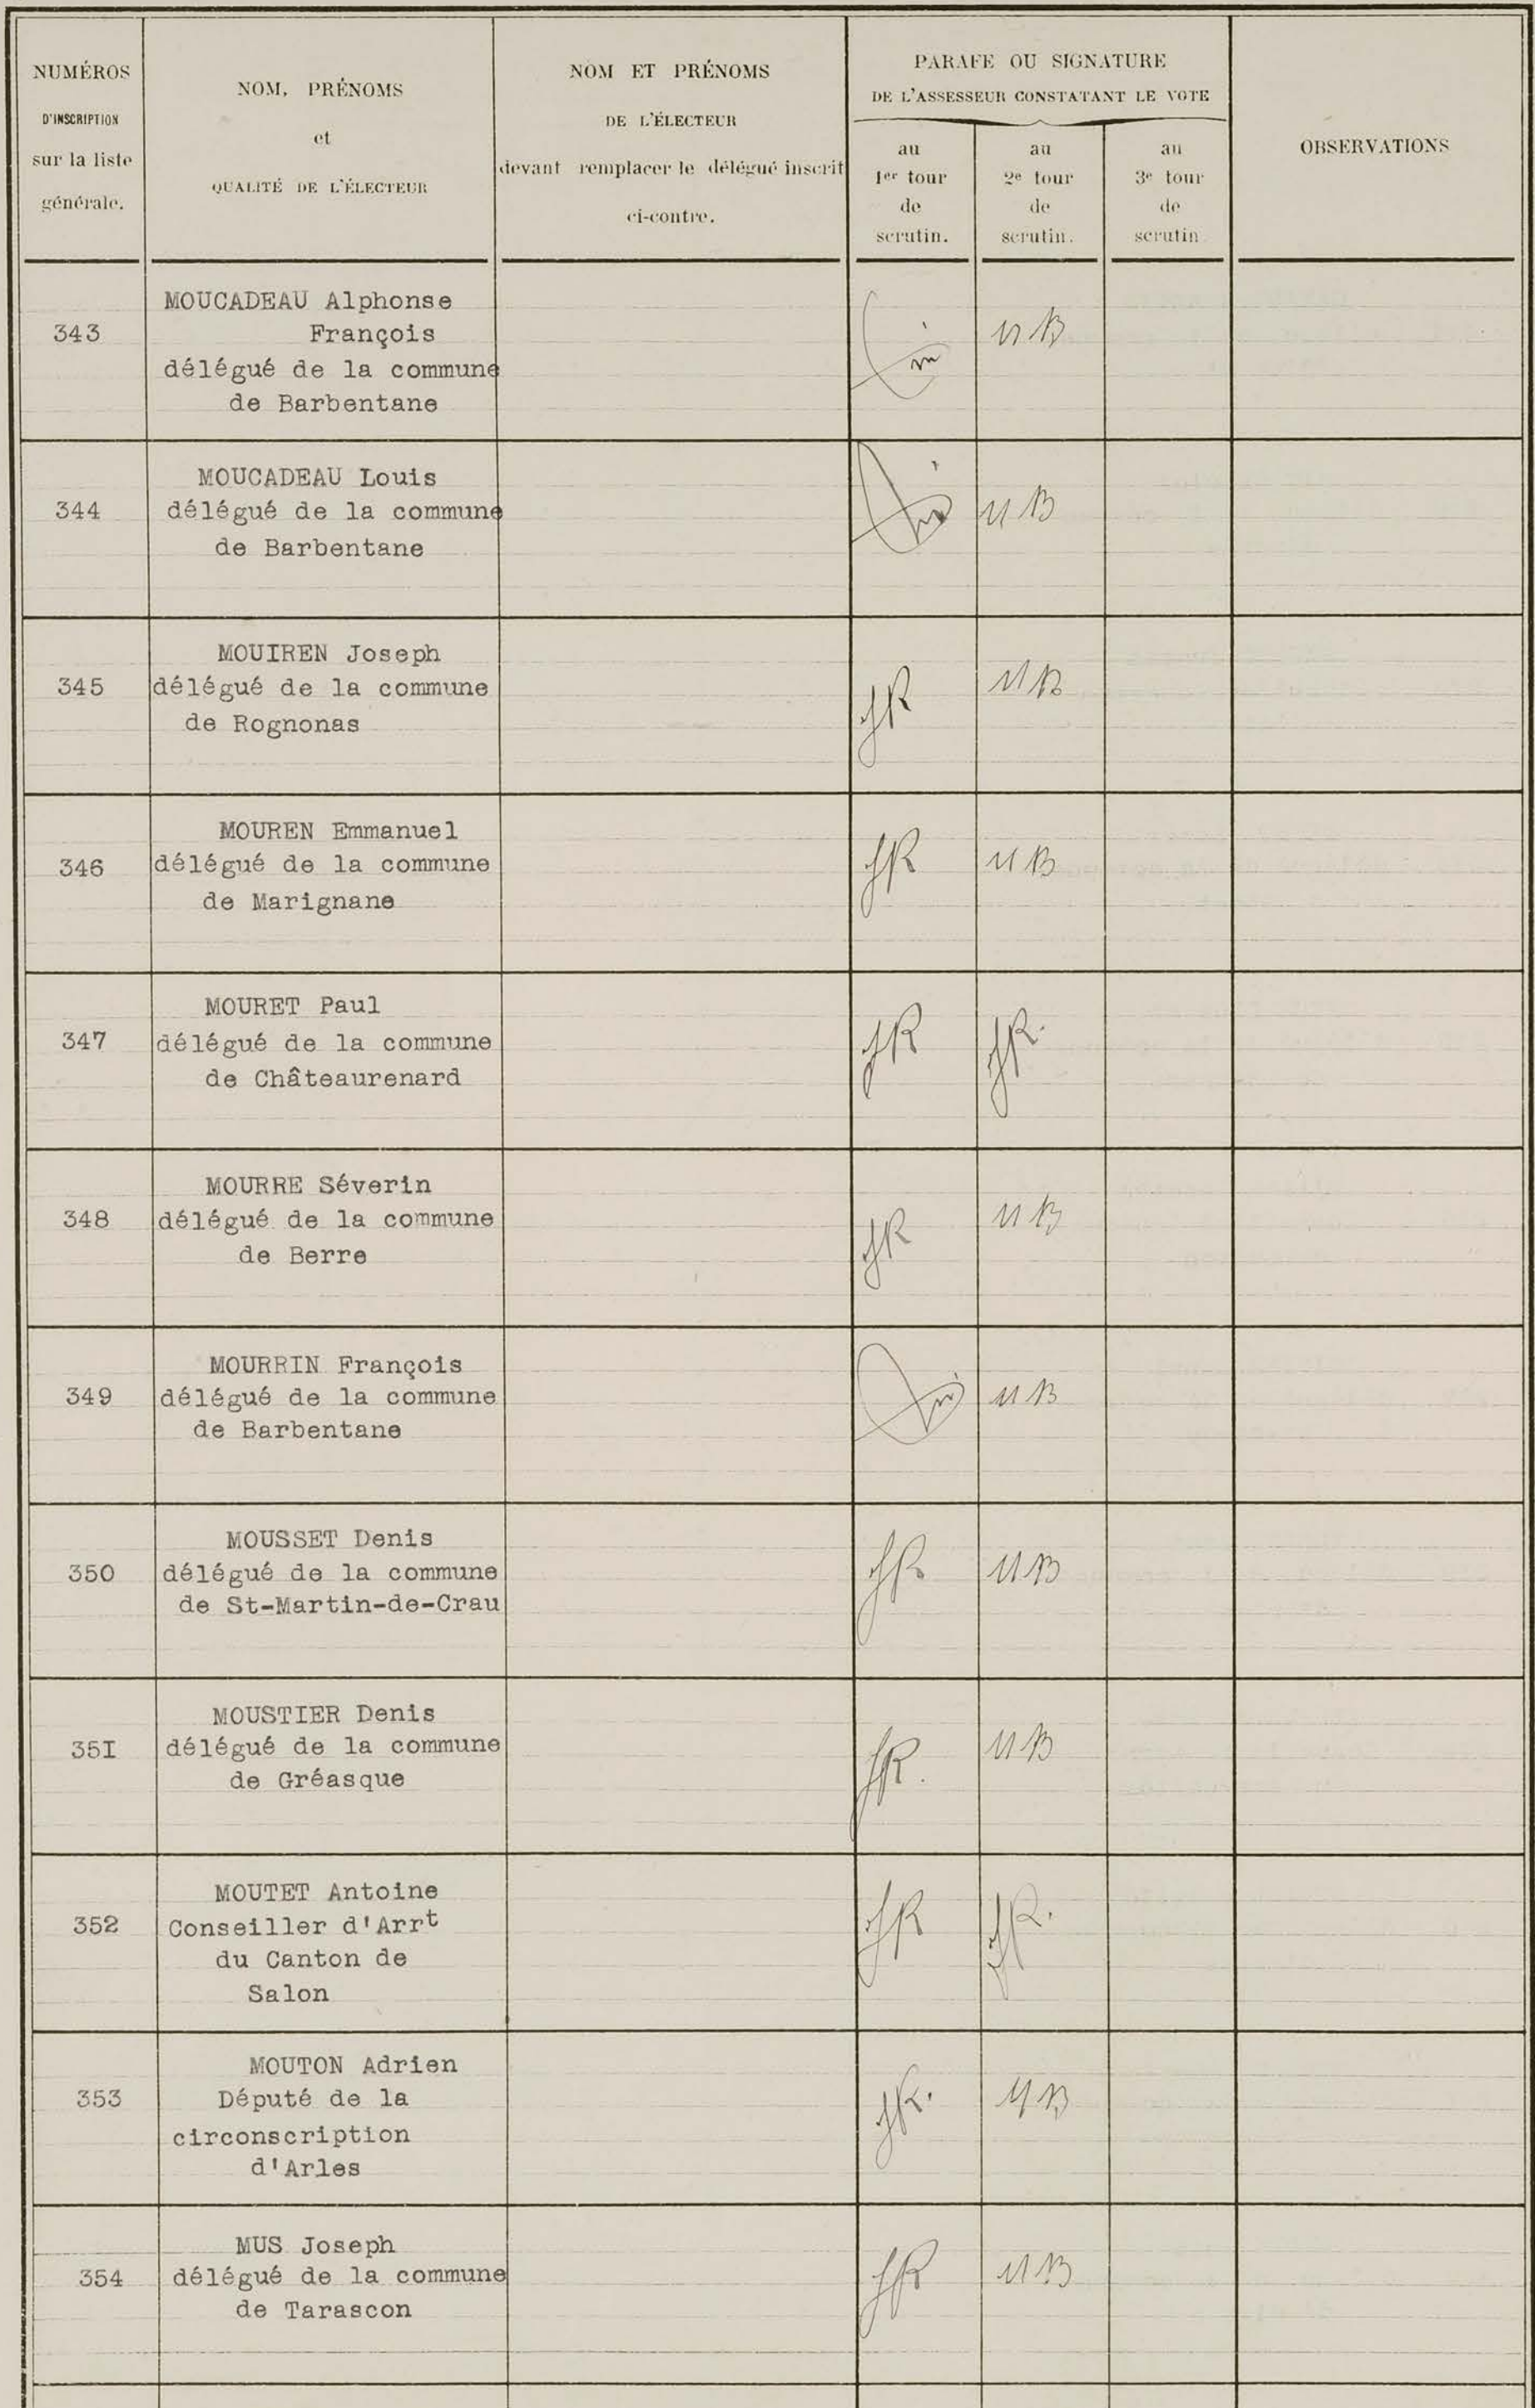 NUMÉROS
D'INSCRIPTION
sur la liste
générale.
NOM, PRÉNOMS
et
QUALITÉ DE L'ÉLECTEUR
NOM ET PRÉNOMS
DE L'ÉLECTEUR
devant remplacer le délégué inscrit
ci-contre.
PARAFE OU SIGNATURE
DE L'ASSESSEUR CONSTATANT LE VOTE
au
1er tour
de
scrutin.
au
2e tour
de
scrutin.
au
3e tour
de
scrutin.
OBSERVATIONS
343
MOUCADEAU Alphonse
François
délégué de la commune
de Barbentane
344
MOUCADEAU Louis
délégué de la commune
de Barbentane
345
MOUIREN Joseph
délégué de la commune
de Rognonas
346
MOUREN Emmanuel
délégué de la commune
de Marignane
347
MOURET Paul
délégué de la commune
de Châteaurenard
348
MOURRE Séverin
délégué de la commune
de Berre
349
MOURRIN François
délégué de la commune
de Barbentane
350
MOUSSET Denis
délégué de la commune
de St-Martin-de-Crau
35I
MOUSTIER Denis
délégué de la commune
de Gréasque
352
MOUTET Antoine
Conseiller d'Arrt
du Canton de
Salon
353
MOUTON Adrien
Député de la
circonscription
d'Arles
354
MUS Joseph
délégué de la commune
de Tarascon